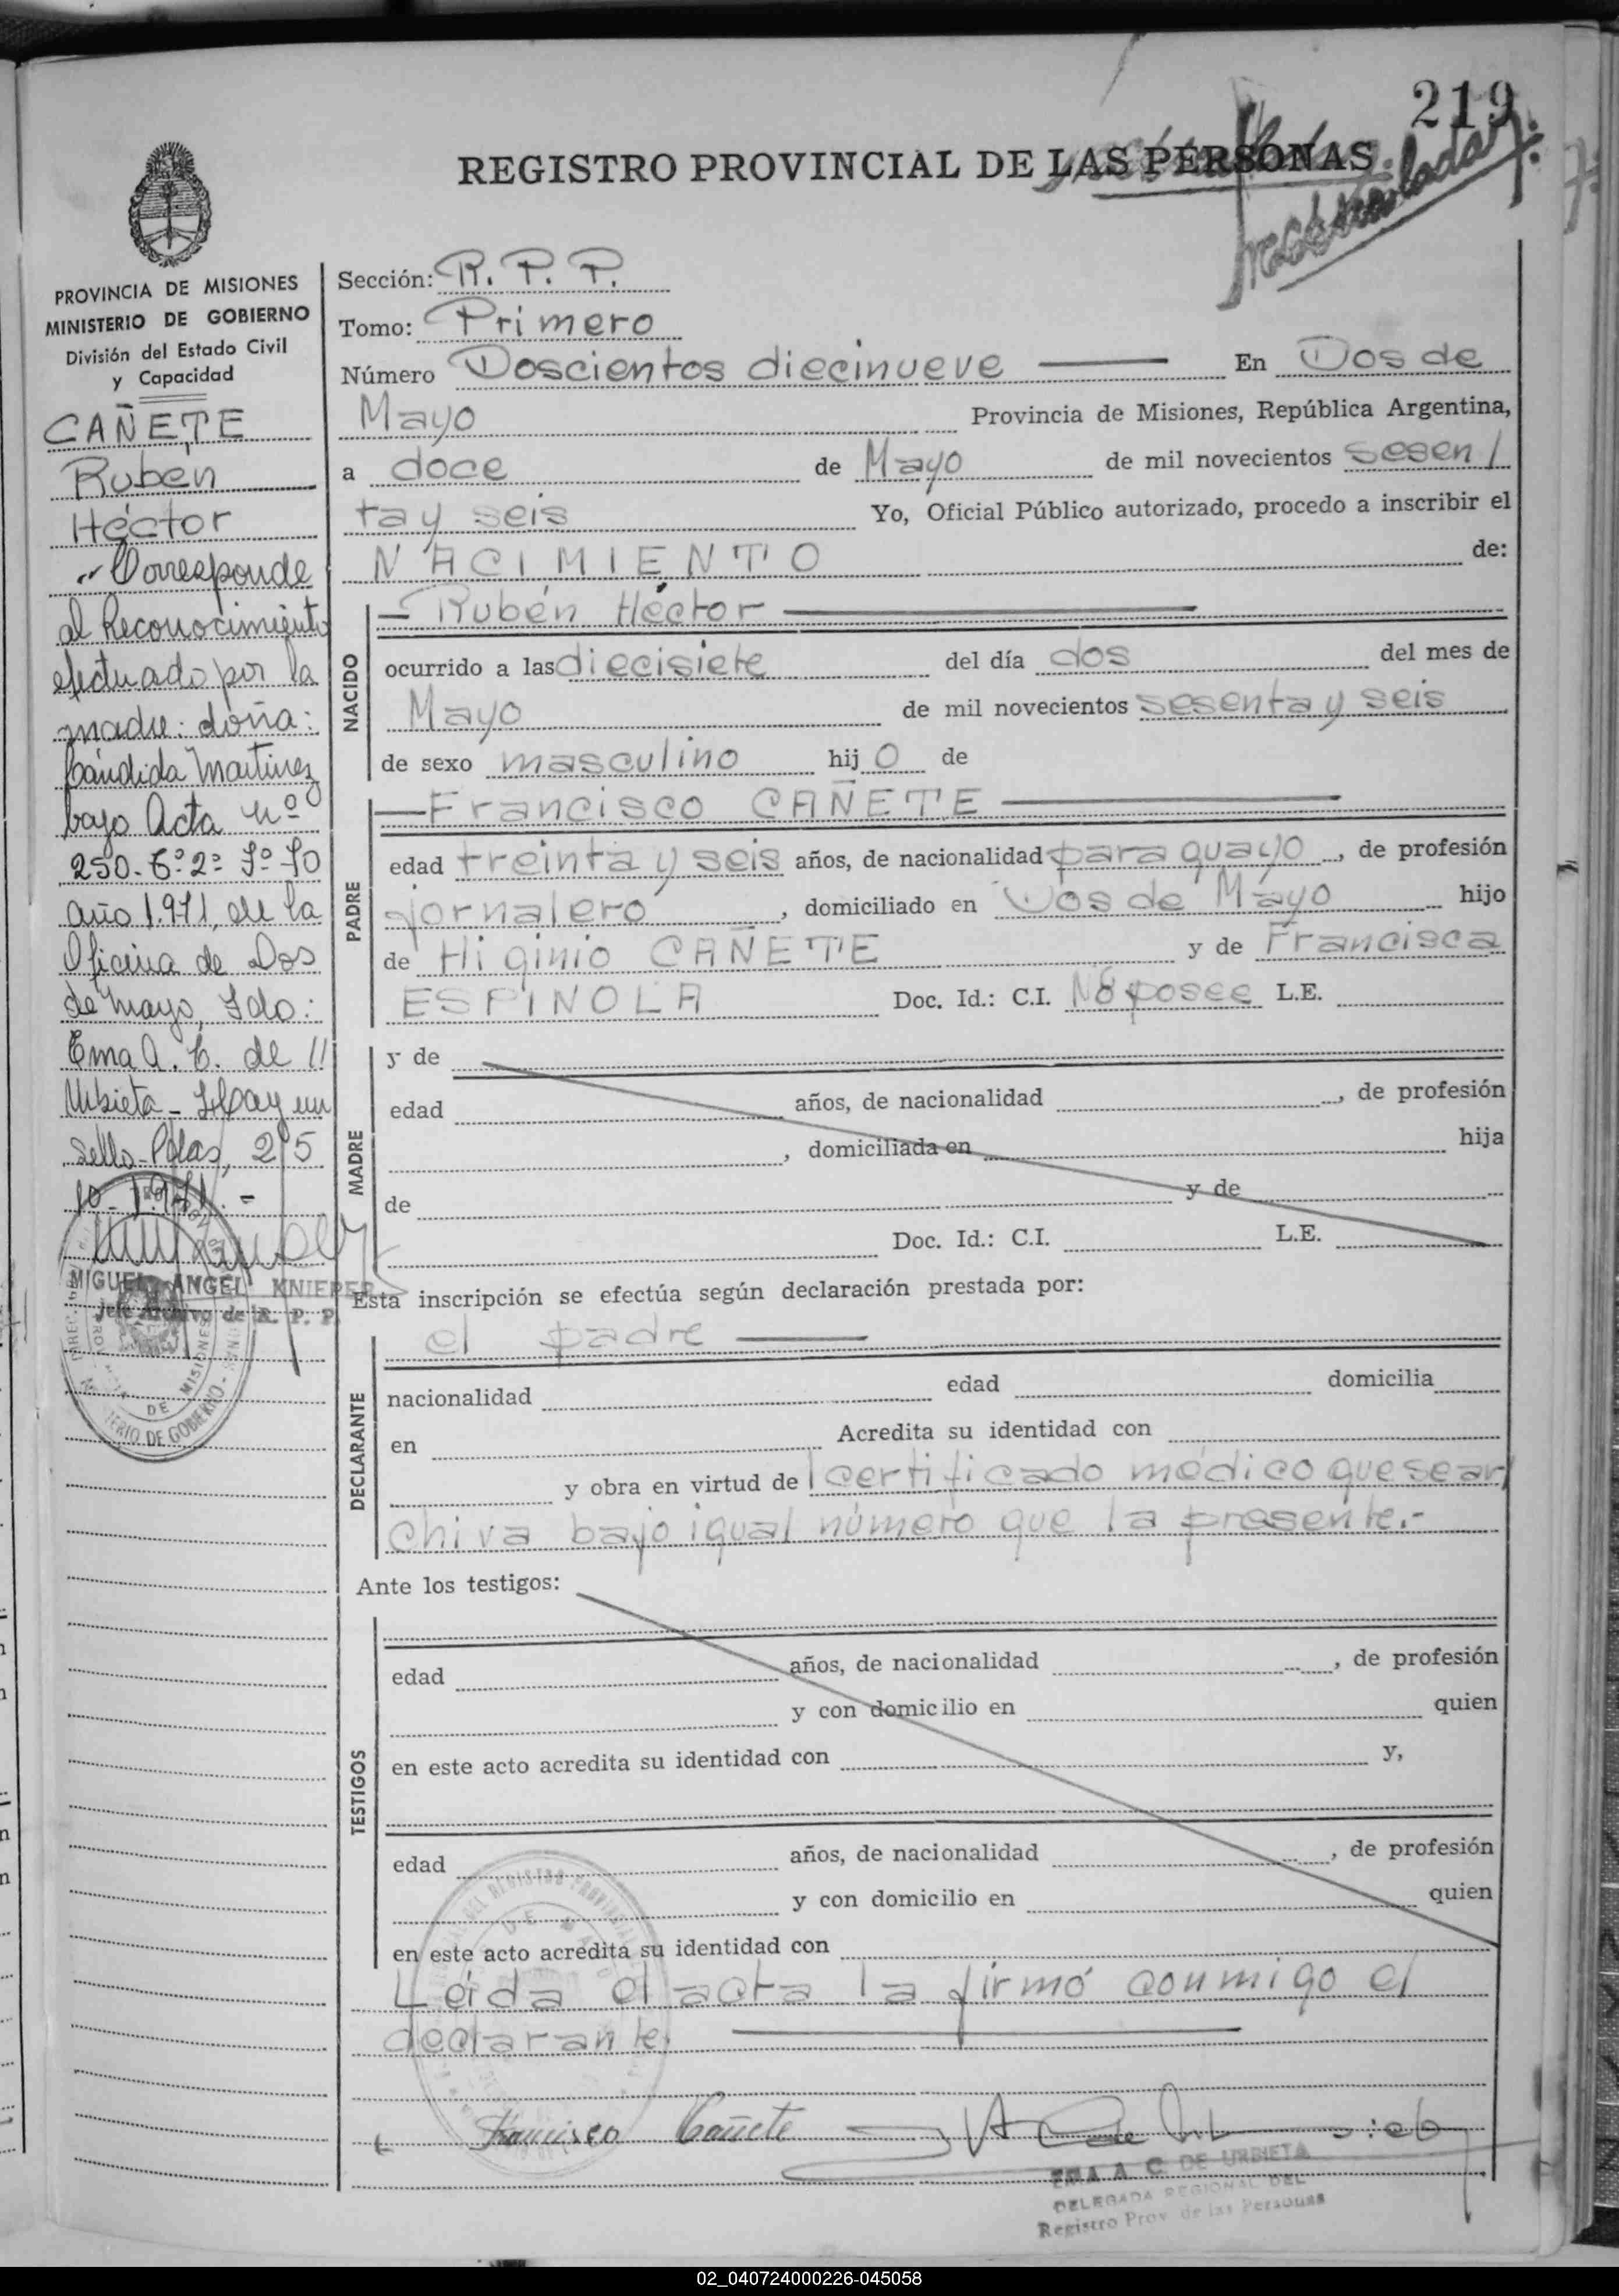 219
REGISTRO PROVINCIAL DE LAS PERSONAS
PROVINCIA DE MISIONES
MINISTERIO DE GOBIERNO
División del Estado Civil
y Capacidad
CAÑETE
Ruben
Héctor
Corresponde
al Reconocimiento
efectuado por la
madre: doña:
Cándida Martinez
bajo Acta nº
250. Tº 2º Fº 50
año 1.971, de la
Oficina de Dos
de Mayo, Fdo:
Ema A. C. de //
Urbieta - Hay un
sello - Pdas, 25
10 - 1.971. -
MIGUEL ANGEL KNIEPER
Jefe Archivo de R. P. P.
Sección: R. P. P.
Tomo: Primero
Número Doscientos diecinueve En Dos de
Mayo Provincia de Misiones, República Argentina,
a doce de Mayo de mil novecientos sesen/
ta y seis Yo, Oficial Público autorizado, procedo a inscribir el
NACIMIENTO de:
NACIDO
— Rubén Héctor
ocurrido a las diecisiete del día dos del mes de
Mayo de mil novecientos sesenta y seis
de sexo masculino hij o de
PADRE
— Francisco CAÑETE
edad treinta y seis años, de nacionalidad paraguayo, de profesión
jornalero, domiciliado en Dos de Mayo hijo
de Higinio CAÑETE y de Francisca
ESPINOLA Doc. Id.: C.I. No posee L.E.
MADRE
y de
edad años, de nacionalidad , de profesión
, domiciliada en hija
de y de
Doc. Id.: C.I. L.E.
Esta inscripción se efectúa según declaración prestada por:
DECLARANTE
el padre
nacionalidad edad domicilia
en Acredita su identidad con
y obra en virtud de certificado médico que se ar/
chiva bajo igual número que la presente.-
Ante los testigos:
TESTIGOS
edad años, de nacionalidad , de profesión
y con domicilio en quien
en este acto acredita su identidad con y,
edad años, de nacionalidad , de profesión
y con domicilio en quien
en este acto acredita su identidad con
Leída el acta la firmó conmigo el
declarante.
Francisco Cañete
EMA A C DE URBIETA
DELEGADA REGIONAL DEL
Registro Prov. de las Personas
02_040724000226-045058